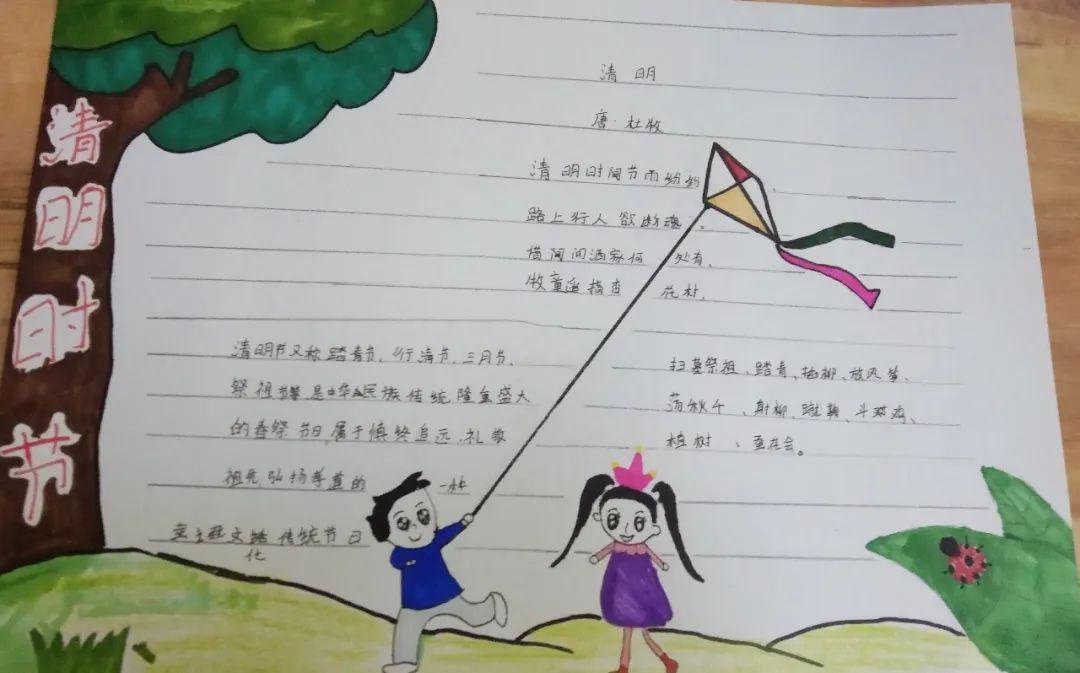 清明时节
清明
唐·杜牧
清明时间节雨纷纷
路上行人欲断魂。
借间问酒家何处有,
牧童遥指杏花村.
清明节又称踏青节、行清节、三月节、
祭祖节 是中华民族传统隆重盛大
的春祭节日,属于慎终追远、礼敬
祖先弘扬孝道的一种
文化传统节日
扫墓祭祖、踏青、插柳、放风筝、
荡秋千、射柳、蹴鞠、斗鸡、
植树、蚕花会。